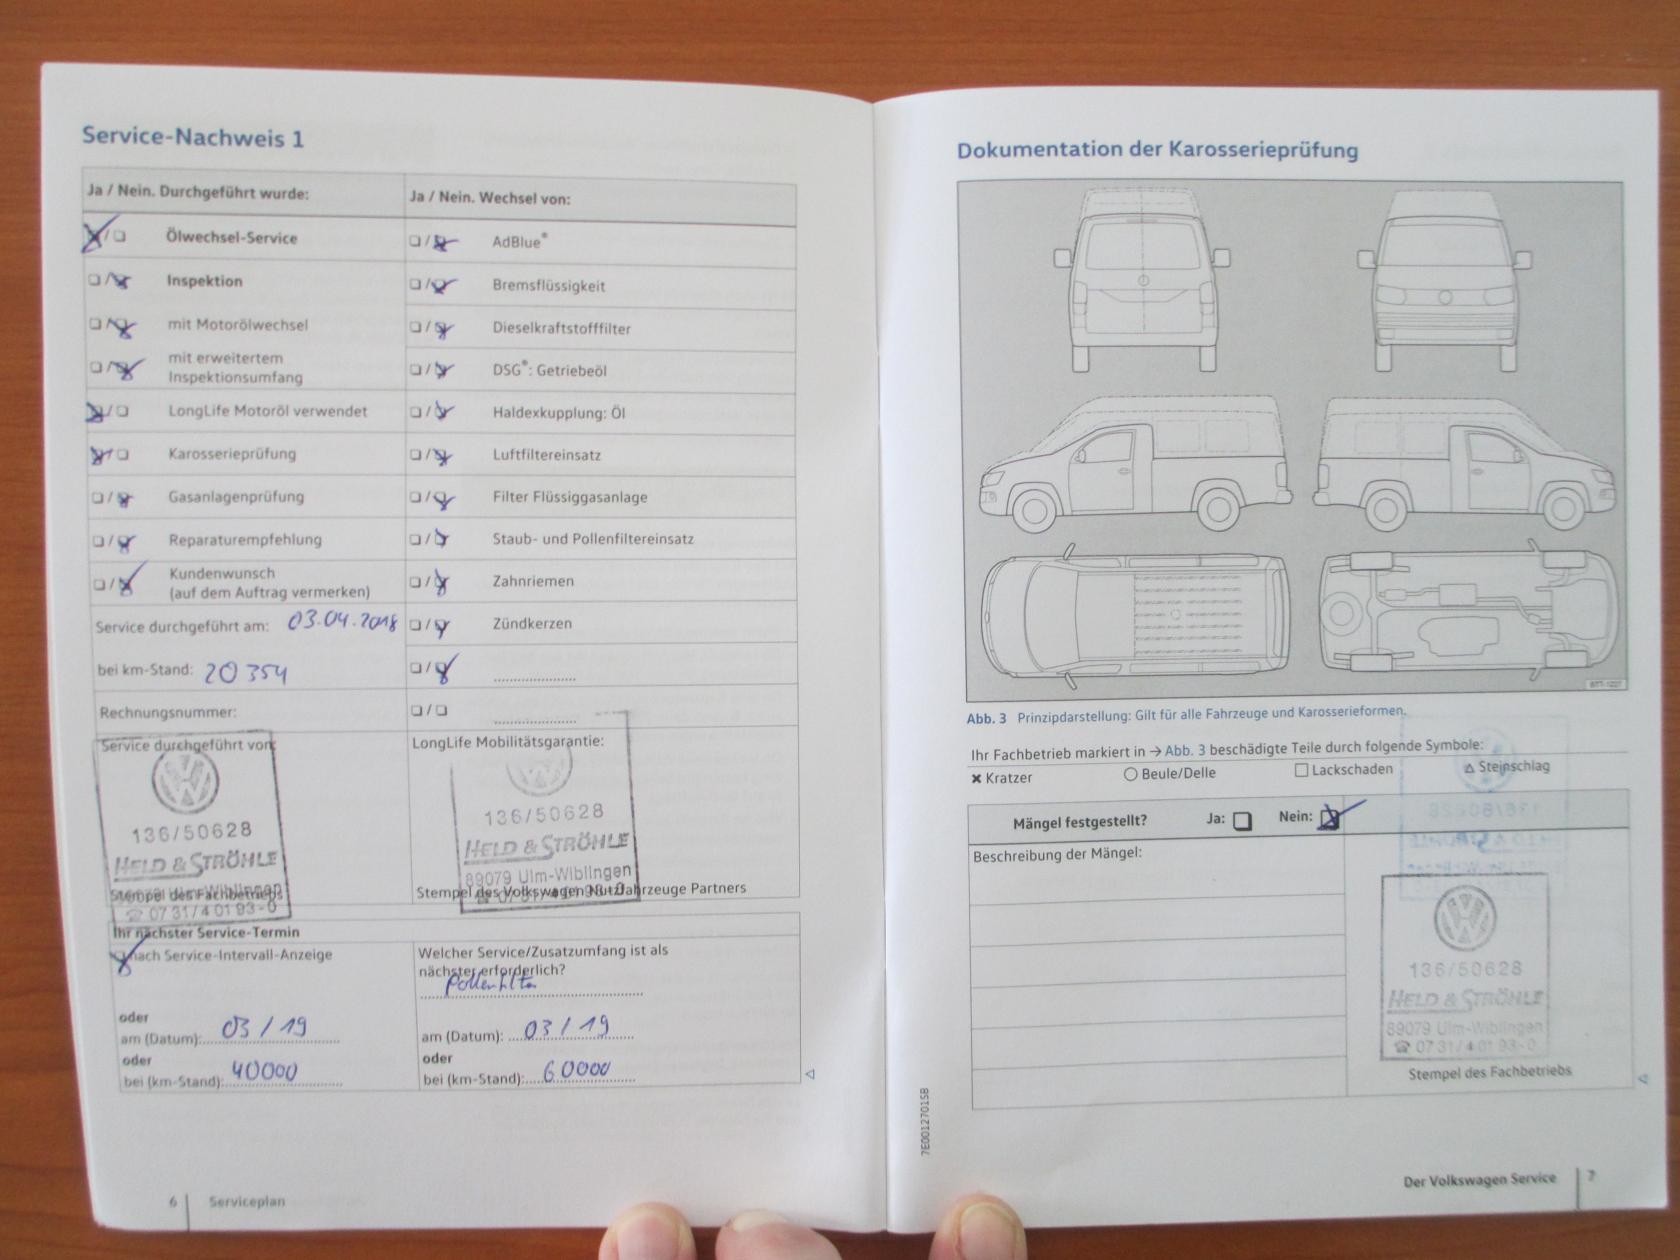 Service-Nachweis 1
Ja / Nein. Durchgeführt wurde:
Ölwechsel-Service
Inspektion
mit Motorölwechsel
mit erweitertem
Inspektionsumfang
LongLife Motoröl verwendet
Karosserieprüfung
Gasanlagenprüfung
Reparaturempfehlung
Kundenwunsch
(auf dem Auftrag vermerken)
Service durchgeführt am: 03.04.2018
bei km-Stand: 20354
Rechnungsnummer:
Service durchgeführt von:
136/50628
HELD & STRÖHLE
Ulm-Wiblingen
Stempel des Fachbetriebs
☎ 07 31/4 01 93-0
Ja / Nein. Wechsel von:
AdBlue®
Bremsflüssigkeit
Dieselkraftstofffilter
DSG®: Getriebeöl
Haldexkupplung: Öl
Luftfiltereinsatz
Filter Flüssiggasanlage
Staub- und Pollenfiltereinsatz
Zahnriemen
Zündkerzen
LongLife Mobilitätsgarantie:
136/50628
HELD & STRÖHLE
89079 Ulm-Wiblingen
Stempel des Volkswagen Nutzfahrzeuge Partners
Ihr nächster Service-Termin
nach Service-Intervall-Anzeige
oder
am (Datum): 03/19
oder
bei (km-Stand): 40000
Welcher Service/Zusatzumfang ist als
nächster erforderlich?
am (Datum): 03/19
oder
bei (km-Stand): 60000
6 Serviceplan
Dokumentation der Karosserieprüfung
Abb. 3 Prinzipdarstellung: Gilt für alle Fahrzeuge und Karosserieformen.
Ihr Fachbetrieb markiert in → Abb. 3 beschädigte Teile durch folgende Symbole:
✖ Kratzer ○ Beule/Delle □ Lackschaden △ Steinschlag
Mängel festgestellt? Ja: Nein:
Beschreibung der Mängel:
136/50628
HELD & STRÖHLE
89079 Ulm-Wiblingen
☎ 07 31/4 01 93-0
Stempel des Fachbetriebs
7E0012701SB
Der Volkswagen Service 7